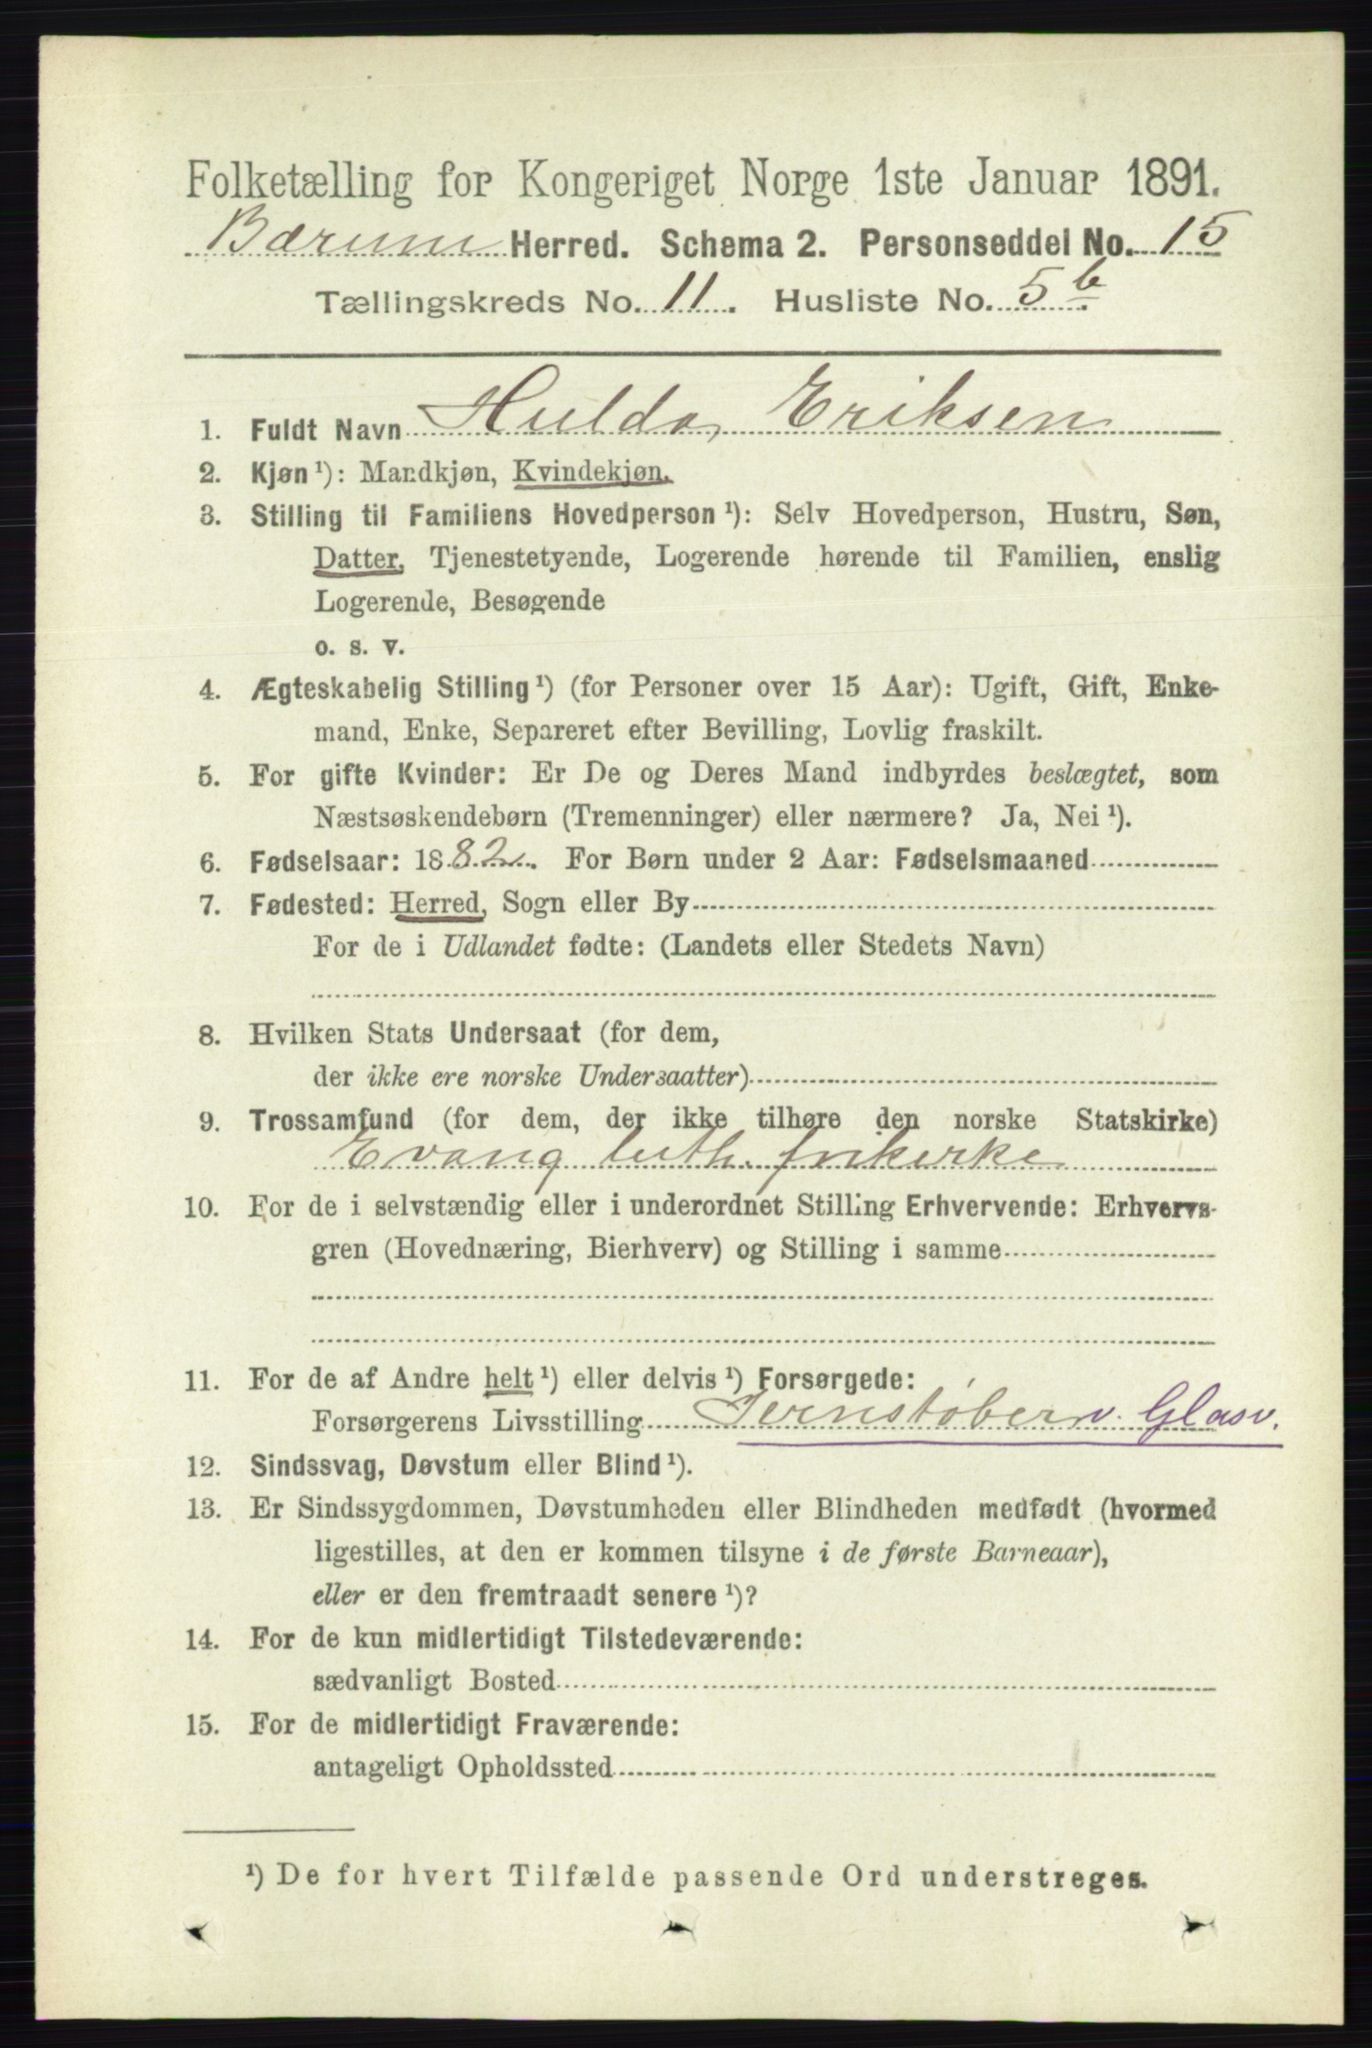 Folketælling for Kongeriget Norge 1ste Januar 1891.
Bærum Herred. Schema 2. Personseddel No. 15
Tællingskreds No. 11. Husliste No. 5 b.
1. Fuldt Navn Hulda Eriksen
2. Kjøn ¹): Mandkjøn, Kvindekjøn.
3. Stilling til Familiens Hovedperson ¹): Selv Hovedperson, Hustru, Søn,
Datter, Tjenestetyende, Logerende hørende til Familien, enslig
Logerende, Besøgende
o. s. v.
4. Ægteskabelig Stilling ¹) (for Personer over 15 Aar): Ugift, Gift, Enke-
mand, Enke, Separeret efter Bevilling, Lovlig fraskilt.
5. For gifte Kvinder: Er De og Deres Mand indbyrdes beslægtet, som
Næstsøskendebørn (Tremenninger) eller nærmere? Ja, Nei ¹).
6. Fødselsaar: 1882. For Børn under 2 Aar: Fødselsmaaned
7. Fødested: Herred, Sogn eller By
For de i Udlandet fødte: (Landets eller Stedets Navn)
8. Hvilken Stats Undersaat (for dem,
der ikke ere norske Undersaatter)
9. Trossamfund (for dem, der ikke tilhøre den norske Statskirke)
Evang luth. frikirke
10. For de i selvstændig eller i underordnet Stilling Erhvervende: Erhvervs-
gren (Hovednæring, Bierhverv) og Stilling i samme
11. For de af Andre helt ¹) eller delvis ¹) Forsørgede:
Forsørgerens Livsstilling Jernstøber v. Glasv.
12. Sindssvag, Døvstum eller Blind ¹).
13. Er Sindssygdommen, Døvstumheden eller Blindheden medfødt (hvormed
ligestilles, at den er kommen tilsyne i de første Barneaar),
eller er den fremtraadt senere ¹)?
14. For de kun midlertidigt Tilstedeværende:
sædvanligt Bosted
15. For de midlertidigt Fraværende:
antageligt Opholdssted
¹) De for hvert Tilfælde passende Ord understreges.